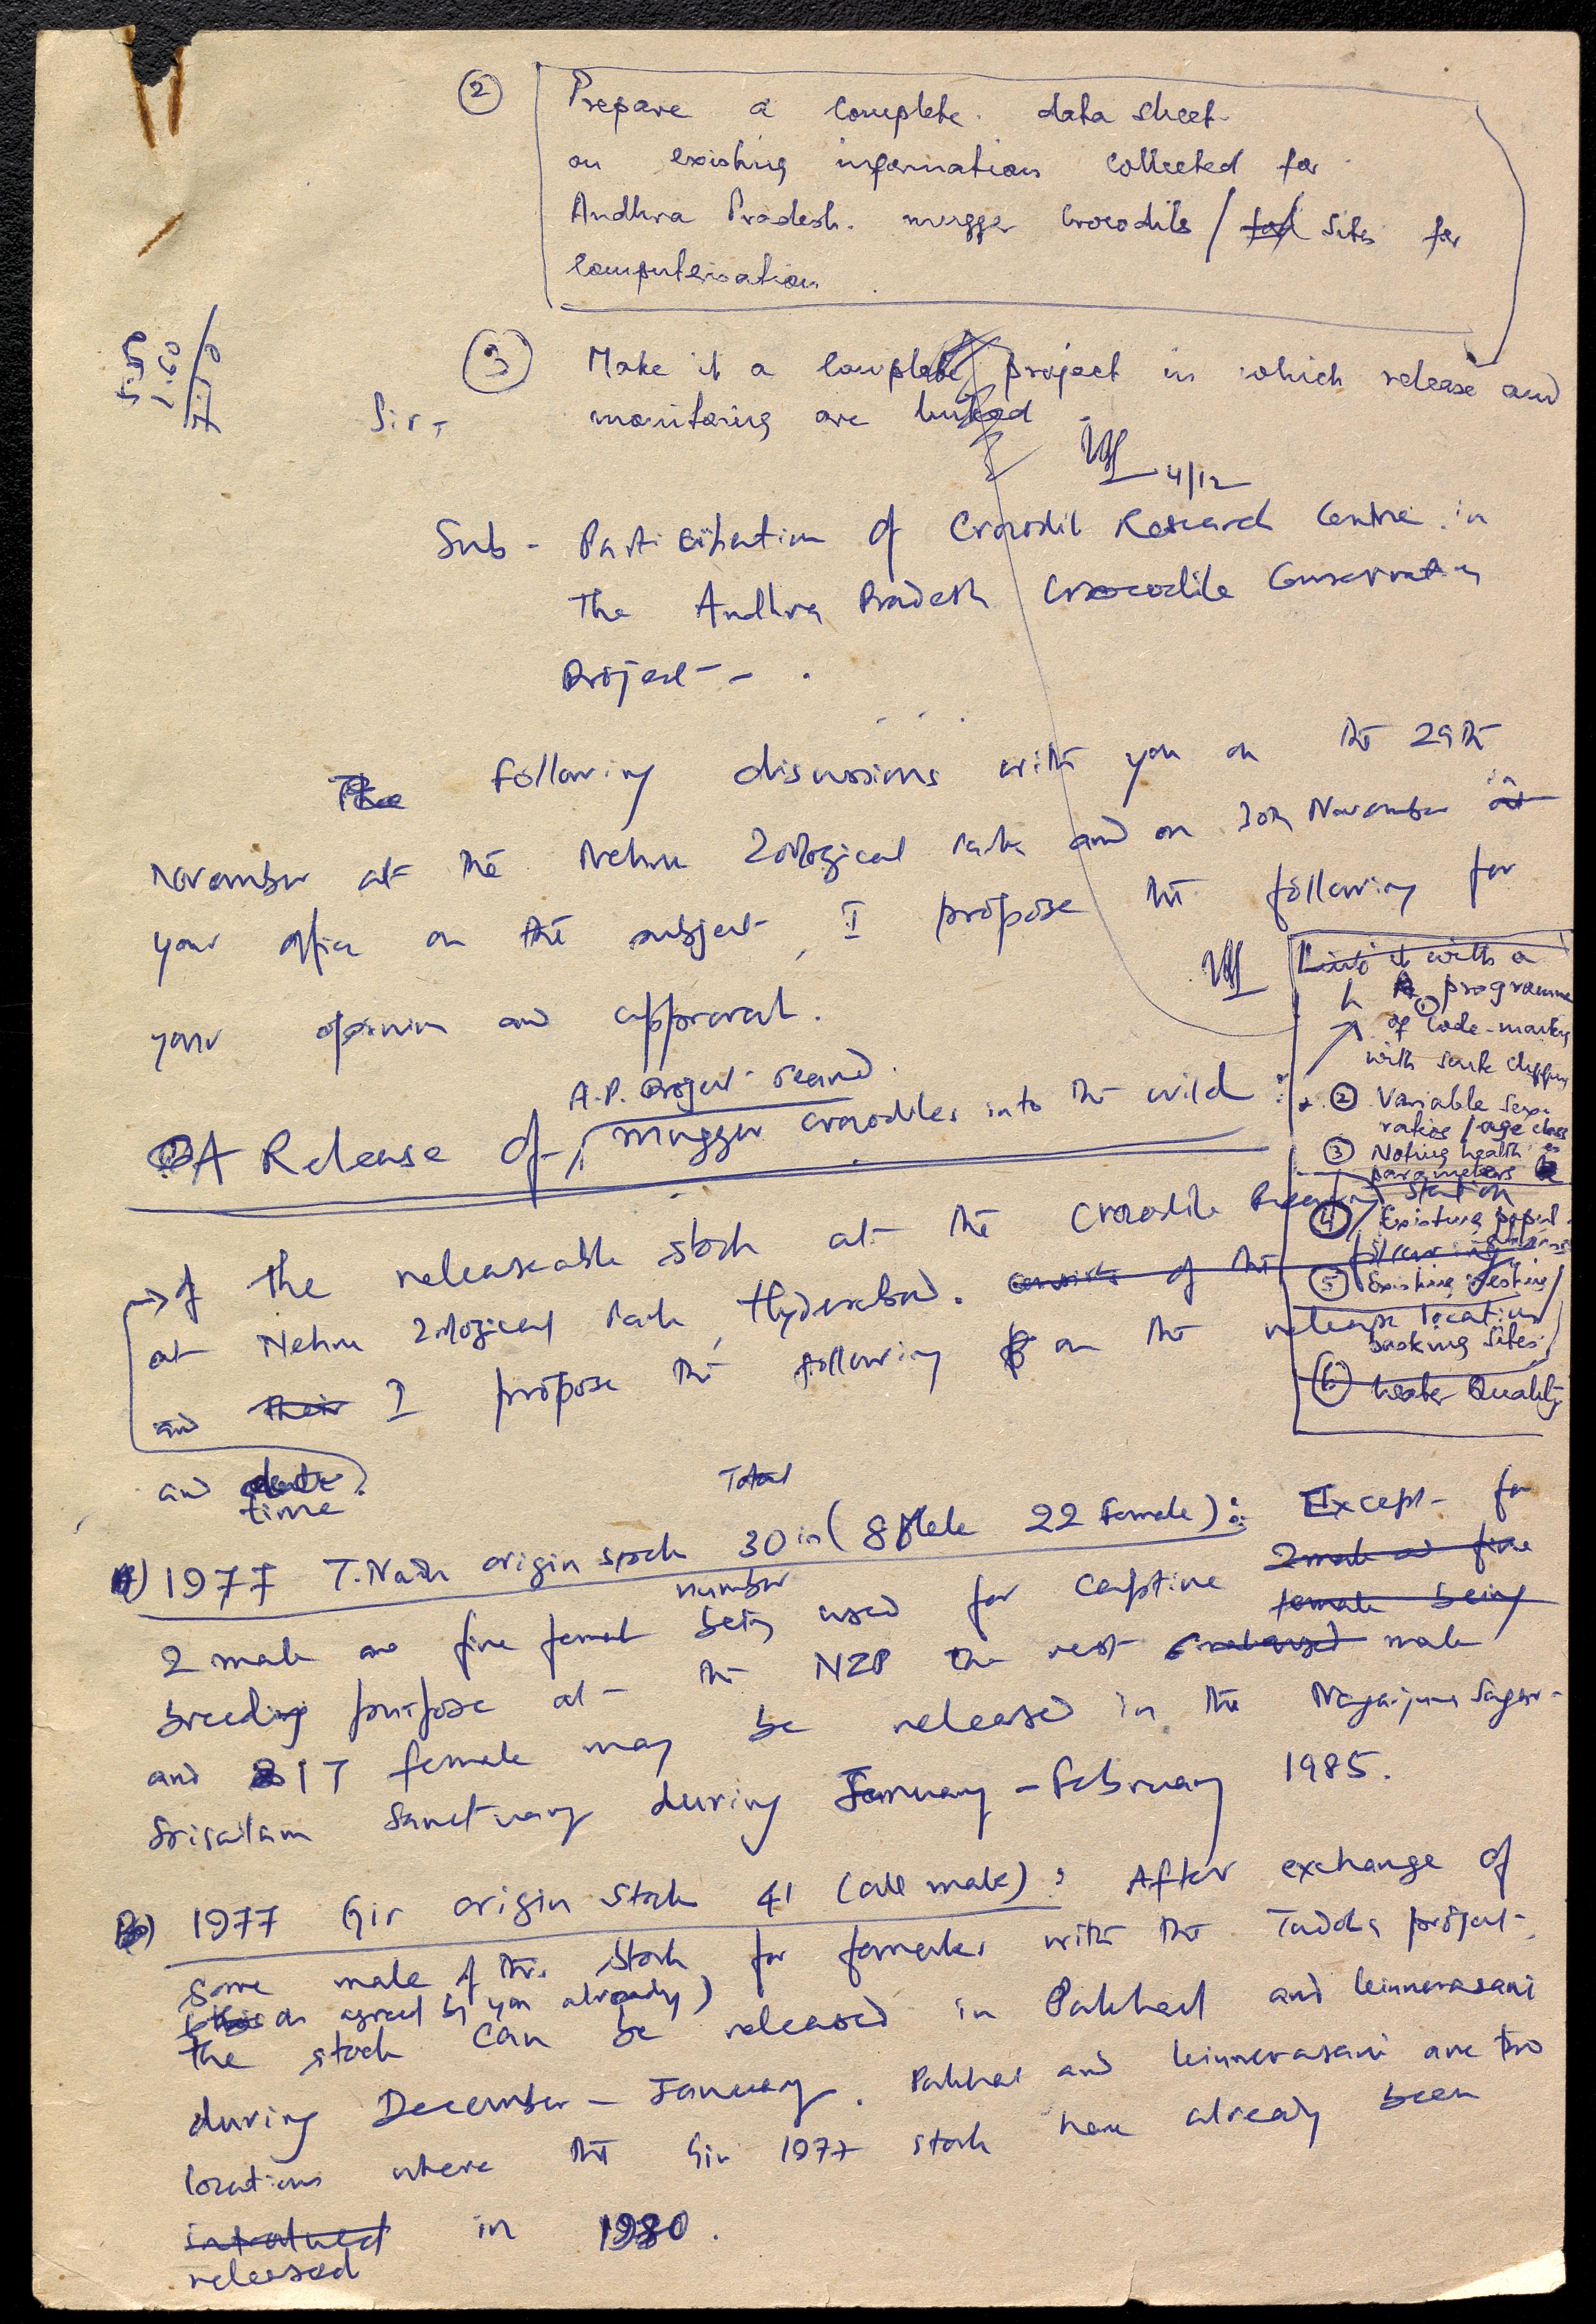 ② Prepare a complete data sheet
on existing information collected for
Andhra Pradesh. mugger Crocodile / sites for
computerisation
5.50
1.60
7.10
③ Make it a complete project in which release and
monitoring are linked
Sir,
4/12
Sub - Participation of Crocodile Research Centre in
the Andhra Pradesh Crocodile Conservation
Project -
The Following discussions with you on the 29th
November at the Nehru Zoological Park and on 30th November at in
your office on the subject, I propose the following for
your opinion and approval.
Link it with a
① programme
of Code-marking
with scute clipping
② Variable Sex-
ratios / age class
③ Noting health
parameters
④ Existing popul-
⑤ Existing nesting/
location
basking sites
⑥ Water Quality
A.P. Project reared
A Release of mugger crocodiles into the wild :
Of the releaseable stock at the Crocodile Breeding Station
at Nehru Zoological Park, Hyderabad. consists of the following
and their I propose the following on the release
and date time.
Total
A) 1977 T.Nadu origin stock 30 in (8 Male 22 Female) : Except for
number
2 male and five female
2 male and five female being used for captive female being
breeding purpose at the NZP the rest male
and 17 female may be released in the Nagarjuna Sagar-
Srisailam Sanctuary during January - February 1985.
B) 1977 Gir origin stock 41 (all male) : After exchange of
some male of this stock for females with the Tadoba project,
(as agreed by you already)
the stock can be released in Pakhal and Kinnerasani
during December - January. Pakhal and Kinnerasani are two
locations where the Gir 1977 stock have already been
introduced in 1980.
released